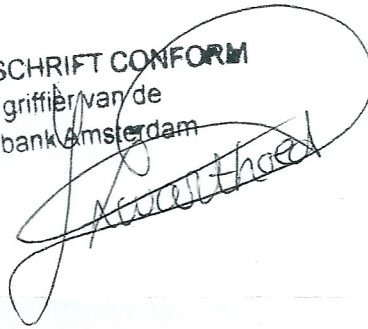 SCHRIFT CONFORM
griffier van de
bank Amsterdam